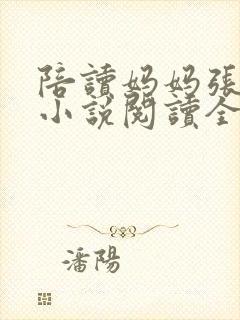 陪讀媽媽張
小說閱讀全
潘陽